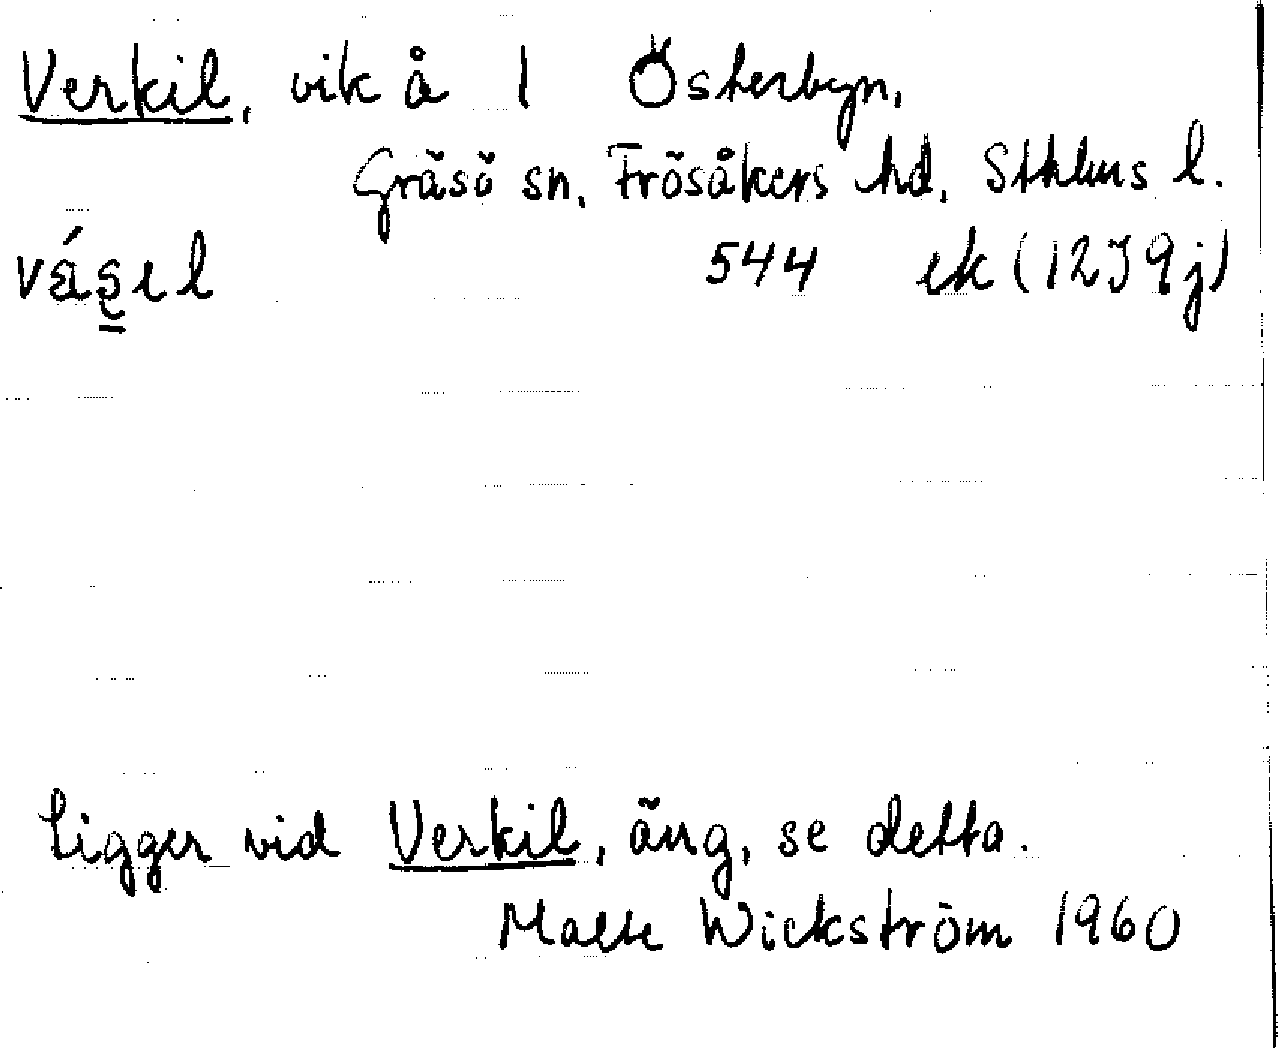 Verkil, vik å 1 Österbyn,
Gräsö sn, Frösåkers hd, Sthlms l.
544 ek (12J9j)
Ligger vid Verkil, äng, se detta.
Malte Wickström 1960